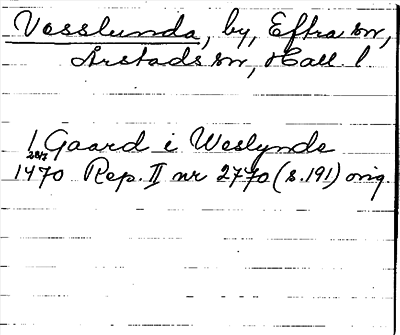 Vesslunda, by, Eftra sn,
Årstads sn, Hall. l
1 Gaard i Weslynde
28/3
1470 Rep. II nr 2770 (s. 191) orig.